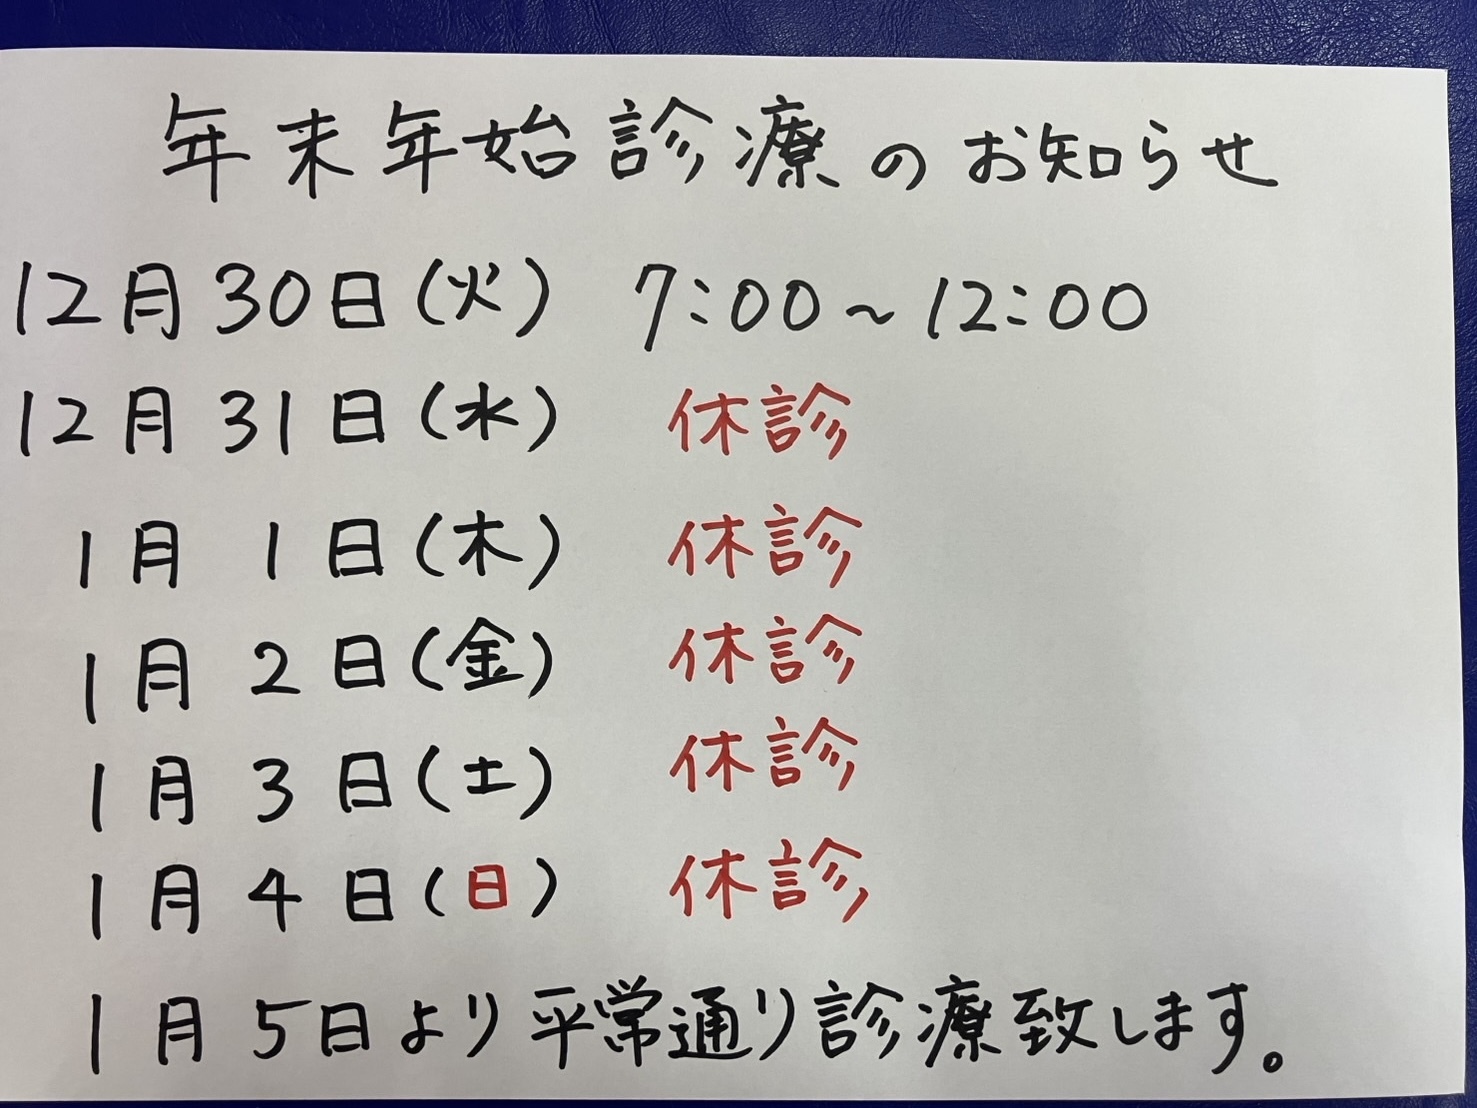 年末年始診療のお知らせ
12月30日(火) 7:00～12:00
12月31日(水) 休診
1月1日(木) 休診
1月2日(金) 休診
1月3日(土) 休診
1月4日(日) 休診
1月5日より平常通り診療致します。